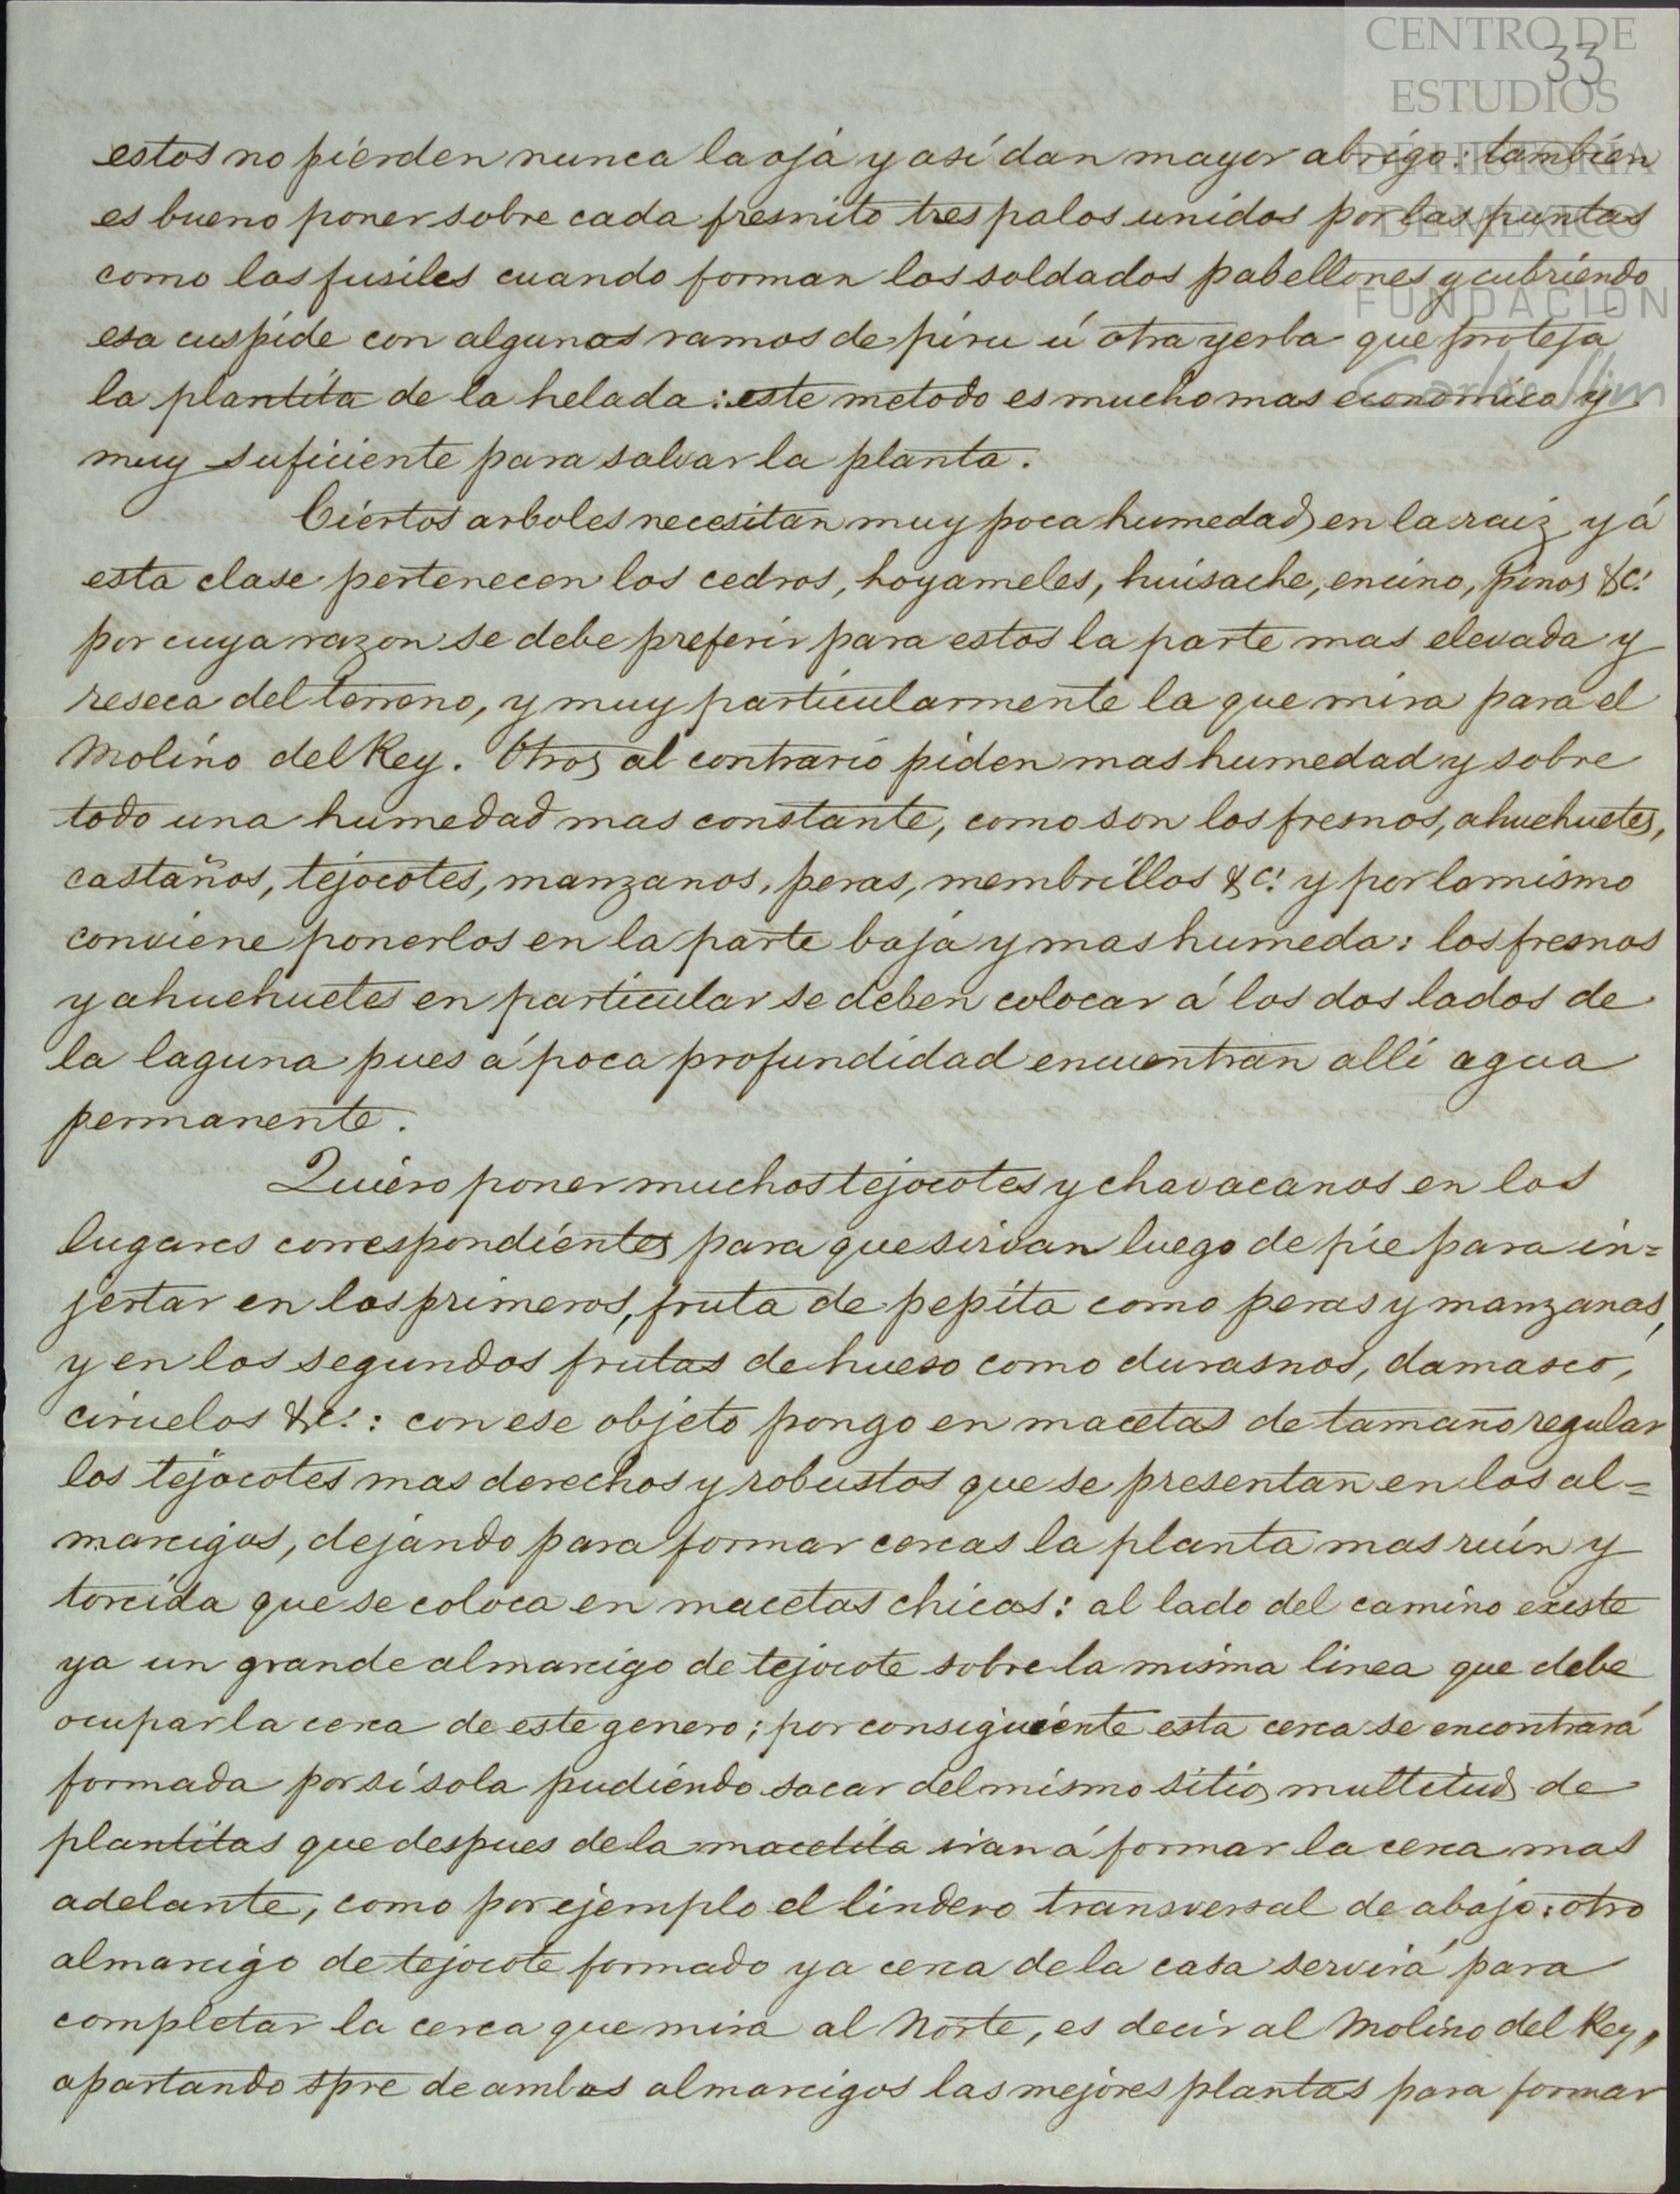 CENTRO DE
ESTUDIOS
DE HISTORIA
DE MEXICO
FUNDACION
Carlos Slim
33
estos no pierden nunca la oja y asi dan mayor abrigo: tambien
es bueno poner sobre cada fresnito tres palos unidos por las puntas
como los fusiles cuando forman los soldados pabellones y cubriendo
esa cuspide con algunos ramos de piru ú otra yerba que proteja
la plantita de la helada: este metodo es mucho mas economico y
muy suficiente para salvar la planta.
Ciertos arboles necesitan muy poca humedad en la raiz y á
esta clase pertenecen los cedros, hoyameles, huisache, encino, pinos &c.
por cuya razon se debe preferir para estos la parte mas elevada y
reseca del terreno, y muy particularmente la que mira para el
Molino del Rey. Otros al contrario piden mas humedad y sobre
todo una humedad mas constante, como son los fresnos, ahuehuetes,
castaños, tejocotes, manzanos, peras, membrillos &c. y por lo mismo
conviene ponerlos en la parte baja y mas humeda: los fresnos
y ahuehuetes en particular se deben colocar á los dos lados de
la laguna pues á poca profundidad encuentran alli agua
permanente.
Quiero poner muchos tejocotes y chavacanos en los
lugares correspondientes para que sirvan luego de pie para in=
jertar en los primeros, fruta de pepita como peras y manzanas,
y en los segundos frutas de hueso como durasnos, damasco,
ciruelos &c.: con ese objeto pongo en macetas de tamaño regular
los tejocotes mas derechos y robustos que se presentan en los al=
marcigos, dejando para formar cercas la planta mas ruin y
torcida que se coloca en macetas chicas: al lado del camino existe
ya un grande almarcigo de tejocote sobre la misma linea que debe
ocupar la cerca de este genero; por consiguiente esta cerca se encontrará
formada por si sola pudiendo sacar del mismo sitio multitud de
plantitas que despues de la macetita iran á formar la cerca mas
adelante, como por ejemplo el lindero transversal de abajo: otro
almarcigo de tejocote formado ya cerca de la casa servirá para
completar la cerca que mira al Norte, es decir al Molino del Rey,
apartando spre de ambos almarcigos las mejores plantas para formar